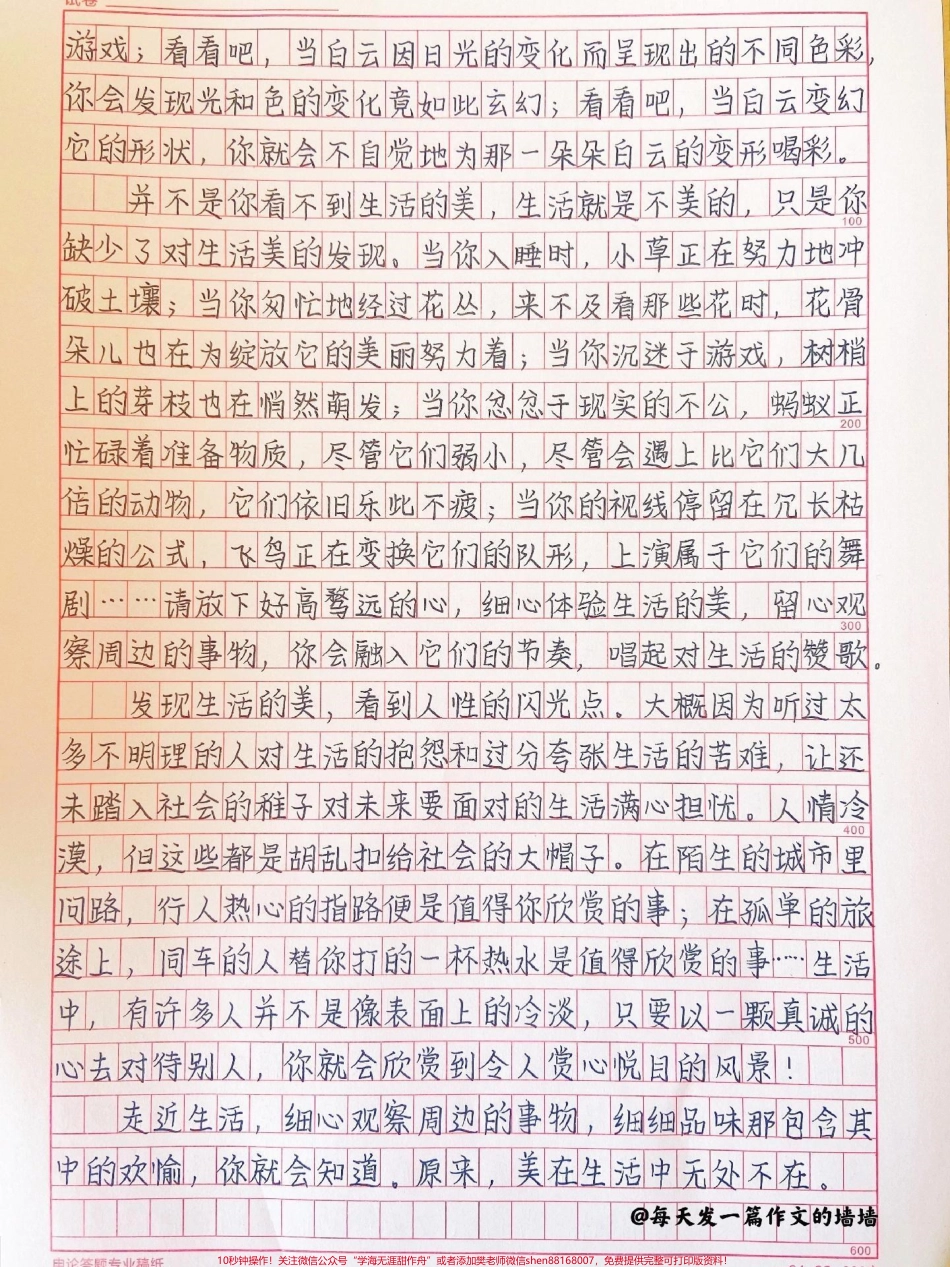 试卷
游戏；看看吧，当白云因日光的变化而呈现出的不同色彩，
你会发现光和色的变化竟如此玄幻；看看吧，当白云变幻
它的形状，你就会不自觉地为那一朵朵白云的变形喝彩。
并不是你看不到生活的美，生活就是不美的，只是你
100
缺少了对生活美的发现。当你入睡时，小草正在努力地冲
破土壤；当你匆忙地经过花丛，来不及看那些花时，花骨
朵儿也在为绽放它的美丽努力着；当你沉迷于游戏，树梢
上的芽枝也在悄然萌发；当你忿忿于现实的不公，蚂蚁正
200
忙碌着准备物质，尽管它们弱小，尽管会遇上比它们大几
倍的动物，它们依旧乐此不疲；当你的视线停留在冗长枯
燥的公式，飞鸟正在变换它们的队形，上演属于它们的舞
剧……请放下好高骛远的心，细心体验生活的美，留心观
300
察周边的事物，你会融入它们的节奏，唱起对生活的赞歌。
发现生活的美，看到人性的闪光点。大概因为听过太
多不明理的人对生活的抱怨和过分夸张生活的苦难，让还
未踏入社会的稚子对未来要面对的生活满心担忧。人情冷
400
漠，但这些都是胡乱扣给社会的大帽子。在陌生的城市里
问路，行人热心的指路便是值得你欣赏的事；在孤单的旅
途上，同车的人替你打的一杯热水是值得欣赏的事……生活
中，有许多人并不是像表面上的冷淡，只要以一颗真诚的
500
心去对待别人，你就会欣赏到令人赏心悦目的风景！
走近生活，细心观察周边的事物，细细品味那包含其
中的欢愉，你就会知道。原来，美在生活中无处不在。
@每天发一篇作文的墙墙
600
申论答题专业稿纸
10秒钟操作！关注微信公众号“学海无涯甜作舟”或者添加樊老师微信shen88168007，免费提供完整可打印版资料！